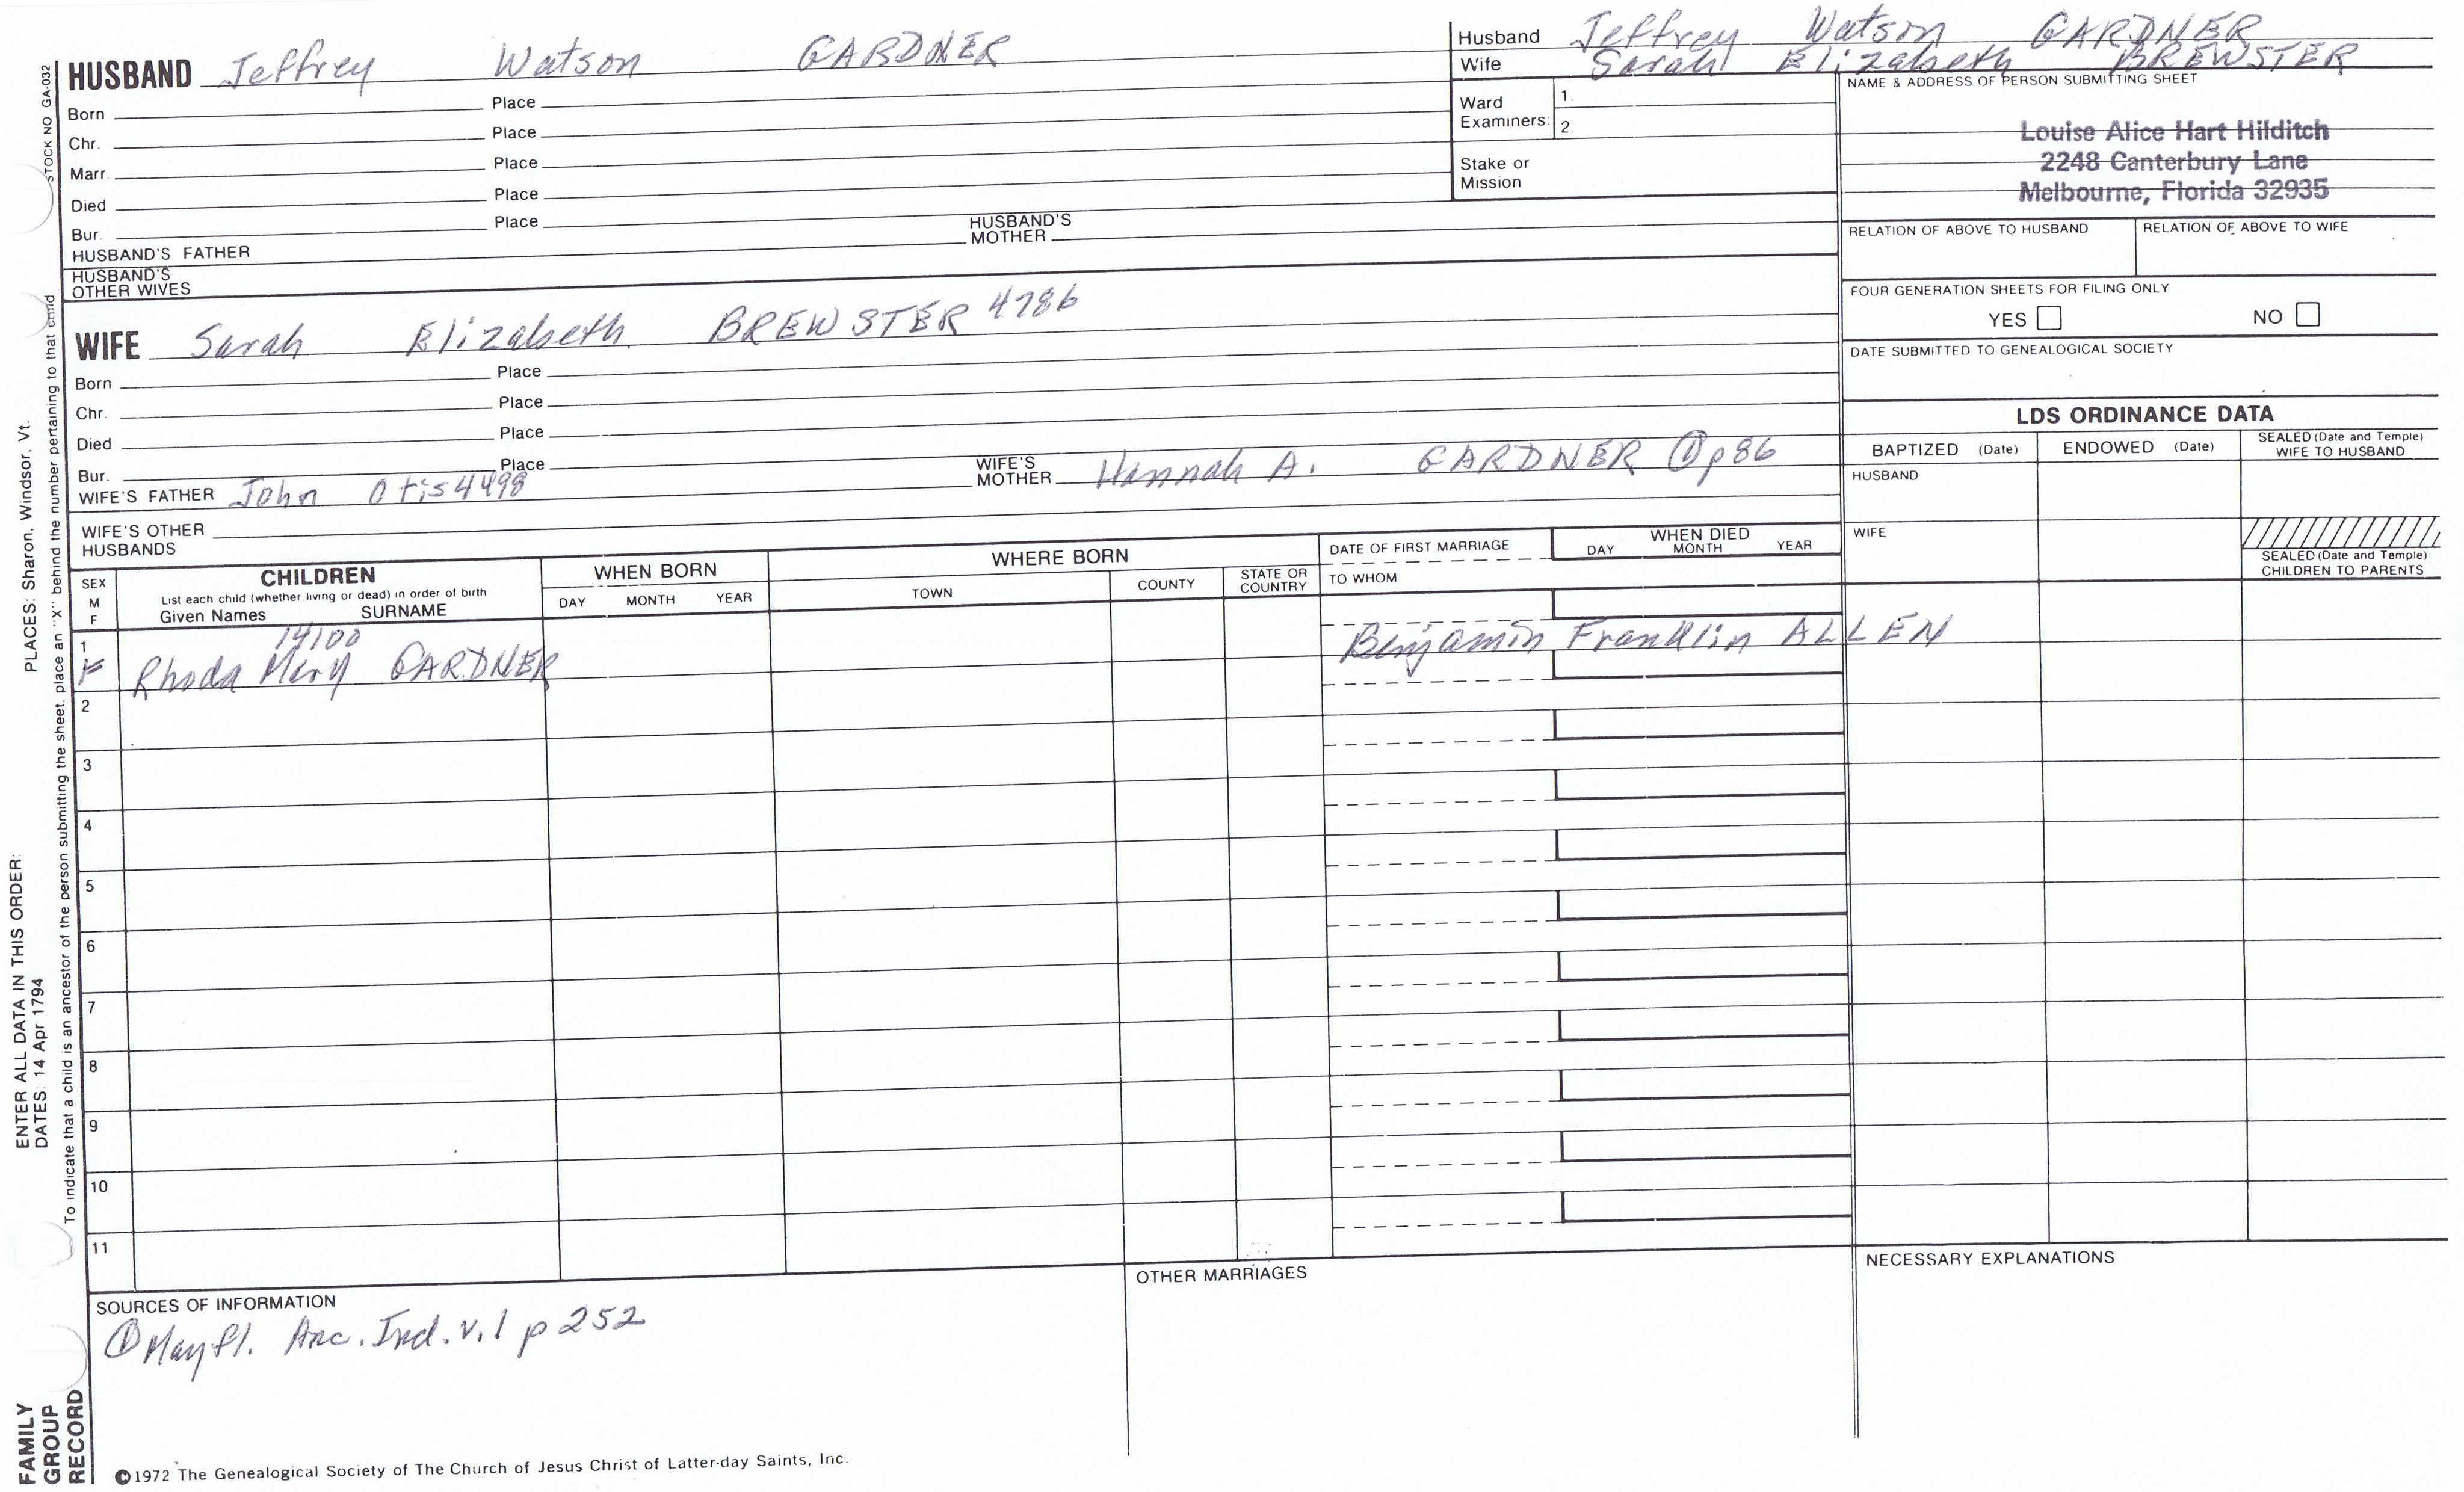 HUSBAND Jeffrey Watson GARDNER
Born Place
Chr. Place
Marr. Place
Died Place
Bur. Place
HUSBAND'S FATHER HUSBAND'S MOTHER
HUSBAND'S OTHER WIVES
Husband Jeffrey Watson GARDNER
Wife Sarah Elizabeth BREWSTER
Ward Examiners: 1.
2.
Stake or Mission
NAME & ADDRESS OF PERSON SUBMITTING SHEET
Louise Alice Hart Hilditch
2248 Canterbury Lane
Melbourne, Florida 32935
RELATION OF ABOVE TO HUSBAND RELATION OF ABOVE TO WIFE
FOUR GENERATION SHEETS FOR FILING ONLY
YES NO
DATE SUBMITTED TO GENEALOGICAL SOCIETY
WIFE Sarah Elizabeth BREWSTER 4786
Born Place
Chr. Place
Died Place
Bur. Place
WIFE'S FATHER John Otis 4498 WIFE'S MOTHER Hannah A. GARDNER ① p86
WIFE'S OTHER HUSBANDS
LDS ORDINANCE DATA
BAPTIZED (Date) ENDOWED (Date) SEALED (Date and Temple) WIFE TO HUSBAND
HUSBAND
WIFE
SEALED (Date and Temple) CHILDREN TO PARENTS
SEX M F
CHILDREN
List each child (whether living or dead) in order of birth
Given Names SURNAME
WHEN BORN
DAY MONTH YEAR
WHERE BORN
TOWN COUNTY STATE OR COUNTRY
DATE OF FIRST MARRIAGE
TO WHOM
WHEN DIED
DAY MONTH YEAR
14100
1 F Rhoda Mery GARDNER Benjamin Franklin ALLEN
2
3
4
5
6
7
8
9
10
11
SOURCES OF INFORMATION
① Mayfl. Anc. Ind. v.1 p 252
OTHER MARRIAGES
NECESSARY EXPLANATIONS
©1972 The Genealogical Society of The Church of Jesus Christ of Latter-day Saints, Inc.
STOCK NO GA-032
To indicate that a child is an ancestor of the person submitting the sheet, place an "X" behind the number pertaining to that child
ENTER ALL DATA IN THIS ORDER:
DATES: 14 Apr 1794
PLACES: Sharon, Windsor, Vt.
FAMILY GROUP RECORD